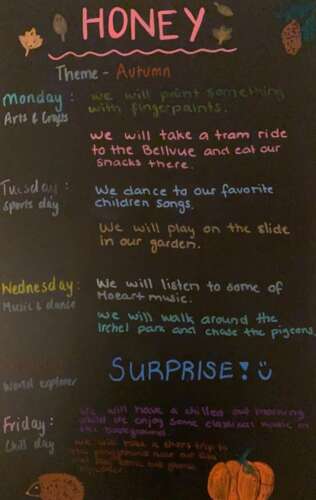 HONEY
Theme - Autumn
Monday : we will paint something
Arts & Crafts with fingerpaints.
we will take a tram ride
to the Bellvue and eat our
snacks there.
Tuesday : We dance to our favorite
sports day children songs.
We will play on the slide
in our garden.
Wednesday : We will listen to some of
Music & dance Mozart music.
We will walk around the
Irchel park and chase the pigeons.
SURPRISE!
World explorer
Friday : We will have a chilled out morning
Chill day while we enjoy some classical music in
the background.
we will take a short trip to
the playground near our
some